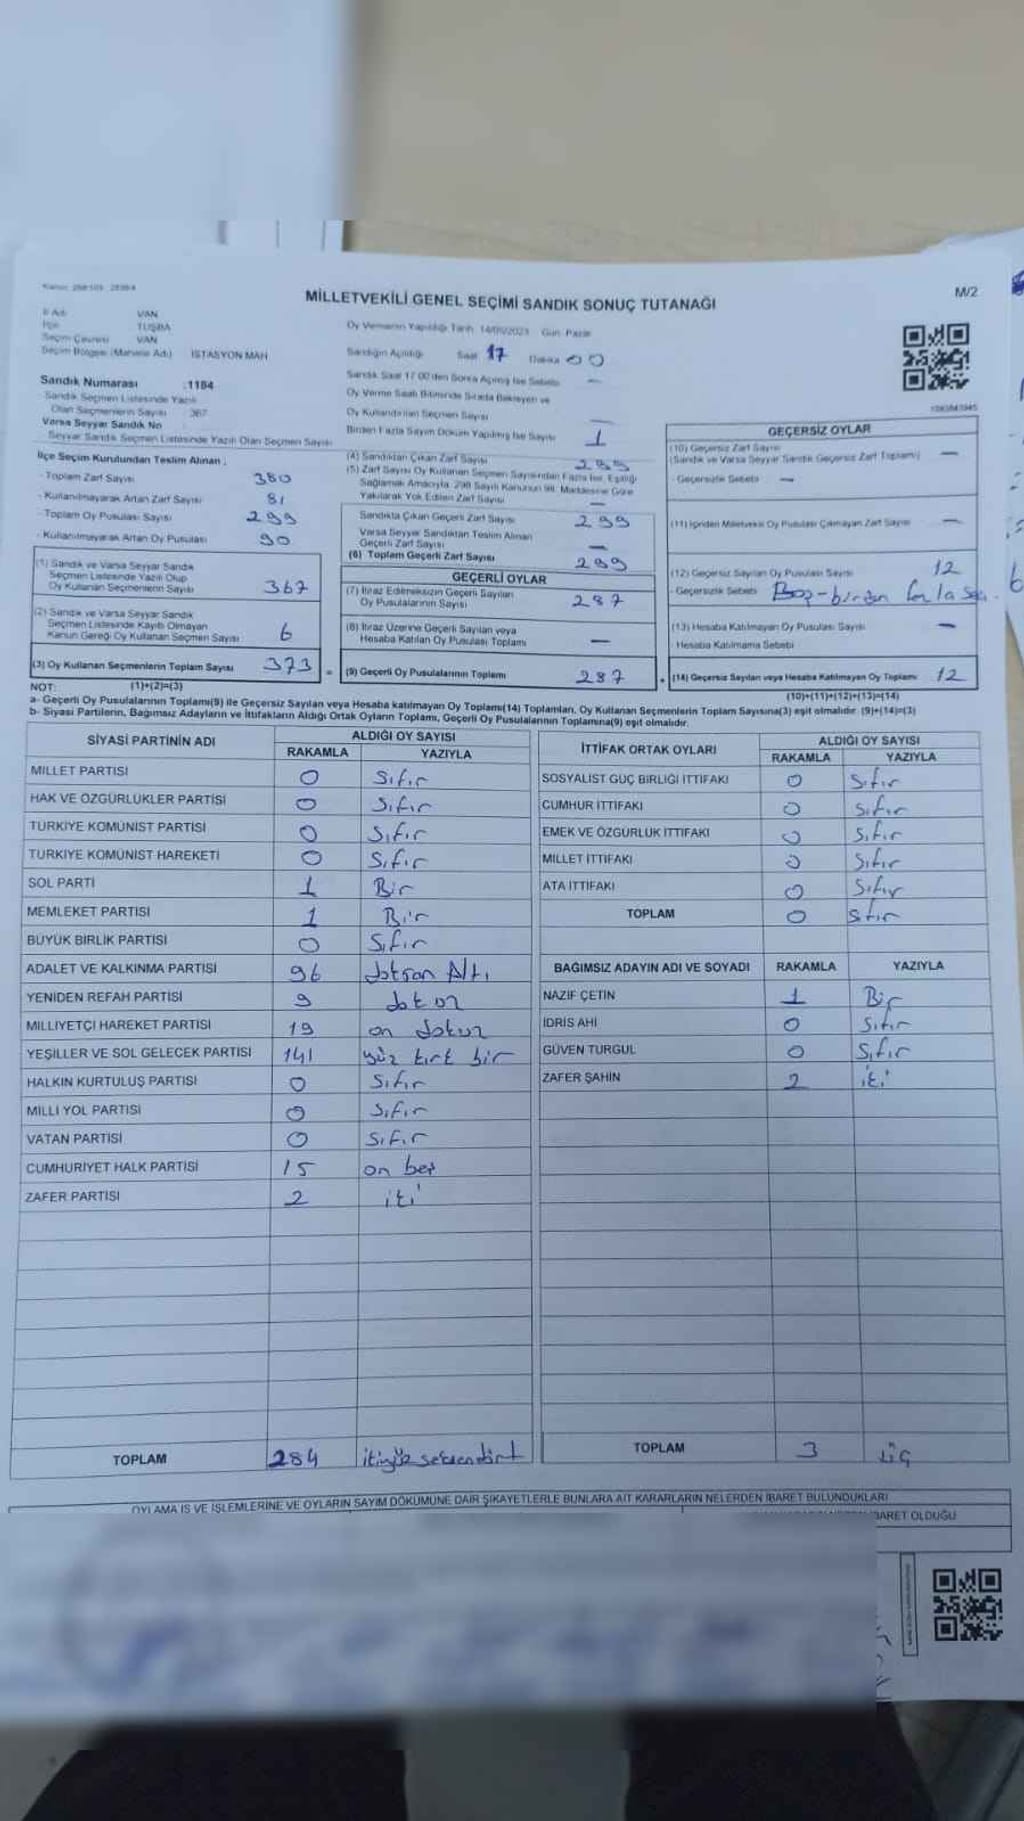 MİLLETVEKİLİ GENEL SEÇİMİ SANDIK SONUÇ TUTANAĞI
M/2
İl Adı VAN
İlçe TUŞBA
Seçim Çevresi VAN
Seçim Bölgesi (Mahalle Adı) İSTASYON MAH
Sandık Numarası :1184
Sandık Seçmen Listesinde Yazılı
Olan Seçmenlerin Sayısı 367
Varsa Seyyar Sandık No
Seyyar Sandık Seçmen Listesinde Yazılı Olan Seçmen Sayısı
Oy Vermenin Yapıldığı Tarih 14/05/2023 Gün Pazar
Sandığın Açıldığı Saat 17 Dakika 00
Sandık Saat 17:00'den Sonra Açılmış İse Sebebi —
Oy Verme Saati Bitiminde Sırada Bekleyen ve
Oy Kullandırılan Seçmen Sayısı —
Birden Fazla Sayım Döküm Yapılmış İse Sayısı 1
İlçe Seçim Kurulundan Teslim Alınan :
- Toplam Zarf Sayısı 380
- Kullanılmayarak Artan Zarf Sayısı 81
- Toplam Oy Pusulası Sayısı 299
- Kullanılmayarak Artan Oy Pusulası 90
(1) Sandık ve Varsa Seyyar Sandık
Seçmen Listesinde Yazılı Olup
Oy Kullanan Seçmenlerin Sayısı 367
(2) Sandık ve Varsa Seyyar Sandık
Seçmen Listesinde Kayıtlı Olmayan
Kanun Gereği Oy Kullanan Seçmen Sayısı 6
(3) Oy Kullanan Seçmenlerin Toplam Sayısı 373
(1)+(2)=(3)
(4) Sandıktan Çıkan Zarf Sayısı 299
(5) Zarf Sayısı Oy Kullanan Seçmen Sayısından Fazla İse, Eşitliği
Sağlamak Amacıyla, 298 Sayılı Kanunun 98. Maddesine Göre
Yakılarak Yok Edilen Zarf Sayısı —
Sandıkta Çıkan Geçerli Zarf Sayısı 299
Varsa Seyyar Sandıktan Teslim Alınan
Geçerli Zarf Sayısı —
(6) Toplam Geçerli Zarf Sayısı 299
GEÇERLİ OYLAR
(7) İtiraz Edilmeksizin Geçerli Sayılan
Oy Pusulalarının Sayısı 287
(8) İtiraz Üzerine Geçerli Sayılan veya
Hesaba Katılan Oy Pusulası Toplamı —
(9) Geçerli Oy Pusulalarının Toplamı 287
GEÇERSİZ OYLAR
(10) Geçersiz Zarf Sayısı
(Sandık ve Varsa Seyyar Sandık Geçersiz Zarf Toplamı) —
- Geçersizlik Sebebi —
(11) İçinden Milletvekili Oy Pusulası Çıkmayan Zarf Sayısı —
(12) Geçersiz Sayılan Oy Pusulası Sayısı 12
- Geçersizlik Sebebi Boş-birden fazla
(13) Hesaba Katılmayan Oy Pusulası Sayısı —
Hesaba Katılmama Sebebi
(14) Geçersiz Sayılan veya Hesaba Katılmayan Oy Toplamı 12
(10)+(11)+(12)+(13)=(14)
NOT:
a- Geçerli Oy Pusulalarının Toplamı(9) ile Geçersiz Sayılan veya Hesaba katılmayan Oy Toplamı(14) Toplamları, Oy Kullanan Seçmenlerin Toplam Sayısına(3) eşit olmalıdır. (9)+(14)=(3)
b- Siyasi Partilerin, Bağımsız Adayların ve İttifakların Aldığı Ortak Oyların Toplamı, Geçerli Oy Pusulalarının Toplamına(9) eşit olmalıdır.
SİYASİ PARTİNİN ADI ALDIĞI OY SAYISI
RAKAMLA YAZIYLA
MİLLET PARTİSİ 0 Sıfır
HAK VE ÖZGÜRLÜKLER PARTİSİ 0 Sıfır
TÜRKİYE KOMÜNİST PARTİSİ 0 Sıfır
TÜRKİYE KOMÜNİST HAREKETİ 0 Sıfır
SOL PARTİ 1 Bir
MEMLEKET PARTİSİ 1 Bir
BÜYÜK BİRLİK PARTİSİ 0 Sıfır
ADALET VE KALKINMA PARTİSİ 96 doksan Altı
YENİDEN REFAH PARTİSİ 9 dokuz
MİLLİYETÇİ HAREKET PARTİSİ 19 on dokuz
YEŞİLLER VE SOL GELECEK PARTİSİ 141 yüz kırk bir
HALKIN KURTULUŞ PARTİSİ 0 Sıfır
MİLLİ YOL PARTİSİ 0 Sıfır
VATAN PARTİSİ 0 Sıfır
CUMHURİYET HALK PARTİSİ 15 on beş
ZAFER PARTİSİ 2 iki
TOPLAM 284 ikiyüz seksendört
İTTİFAK ORTAK OYLARI ALDIĞI OY SAYISI
RAKAMLA YAZIYLA
SOSYALİST GÜÇ BİRLİĞİ İTTİFAKI 0 Sıfır
CUMHUR İTTİFAKI 0 Sıfır
EMEK VE ÖZGÜRLÜK İTTİFAKI 0 Sıfır
MİLLET İTTİFAKI 0 Sıfır
ATA İTTİFAKI 0 Sıfır
TOPLAM 0 Sıfır
BAĞIMSIZ ADAYIN ADI VE SOYADI RAKAMLA YAZIYLA
NAZİF ÇETİN 1 Bir
İDRİS AHİ 0 Sıfır
GÜVEN TURGUL 0 Sıfır
ZAFER ŞAHİN 2 iki
TOPLAM 3 üç
OYLAMA İŞ VE İŞLEMLERİNE VE OYLARIN SAYIM DÖKÜMÜNE DAİR ŞİKAYETLERLE BUNLARA AİT KARARLARIN NELERDEN İBARET BULUNDUKLARI
İBARET OLDUĞU